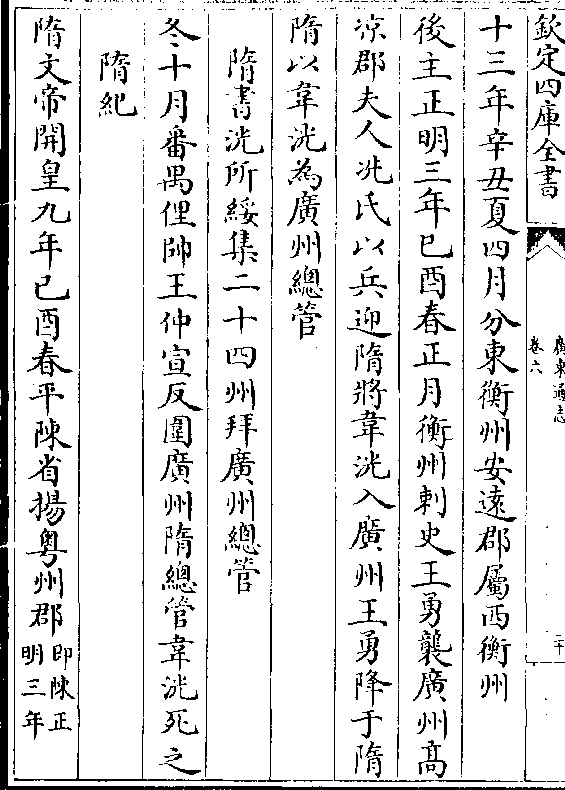 欽定四庫全書
廣東通志
卷六
二十
十三年辛丑夏四月分東衡州安遠郡屬西衡州
後主正明三年巳酉春正月衡州刺史王勇襲廣州髙
凉郡夫人冼氏以兵迎隋將韋洸入廣州王勇降于隋
隋以韋洸為廣州總管
隋書洸所綏集二十四州拜廣州總管
冬十月番禺俚帥王仲宣反圍廣州隋總管韋洸死之
隋紀
隋文帝開皇九年巳酉春平陳省揚粤州郡即陳正
明三年